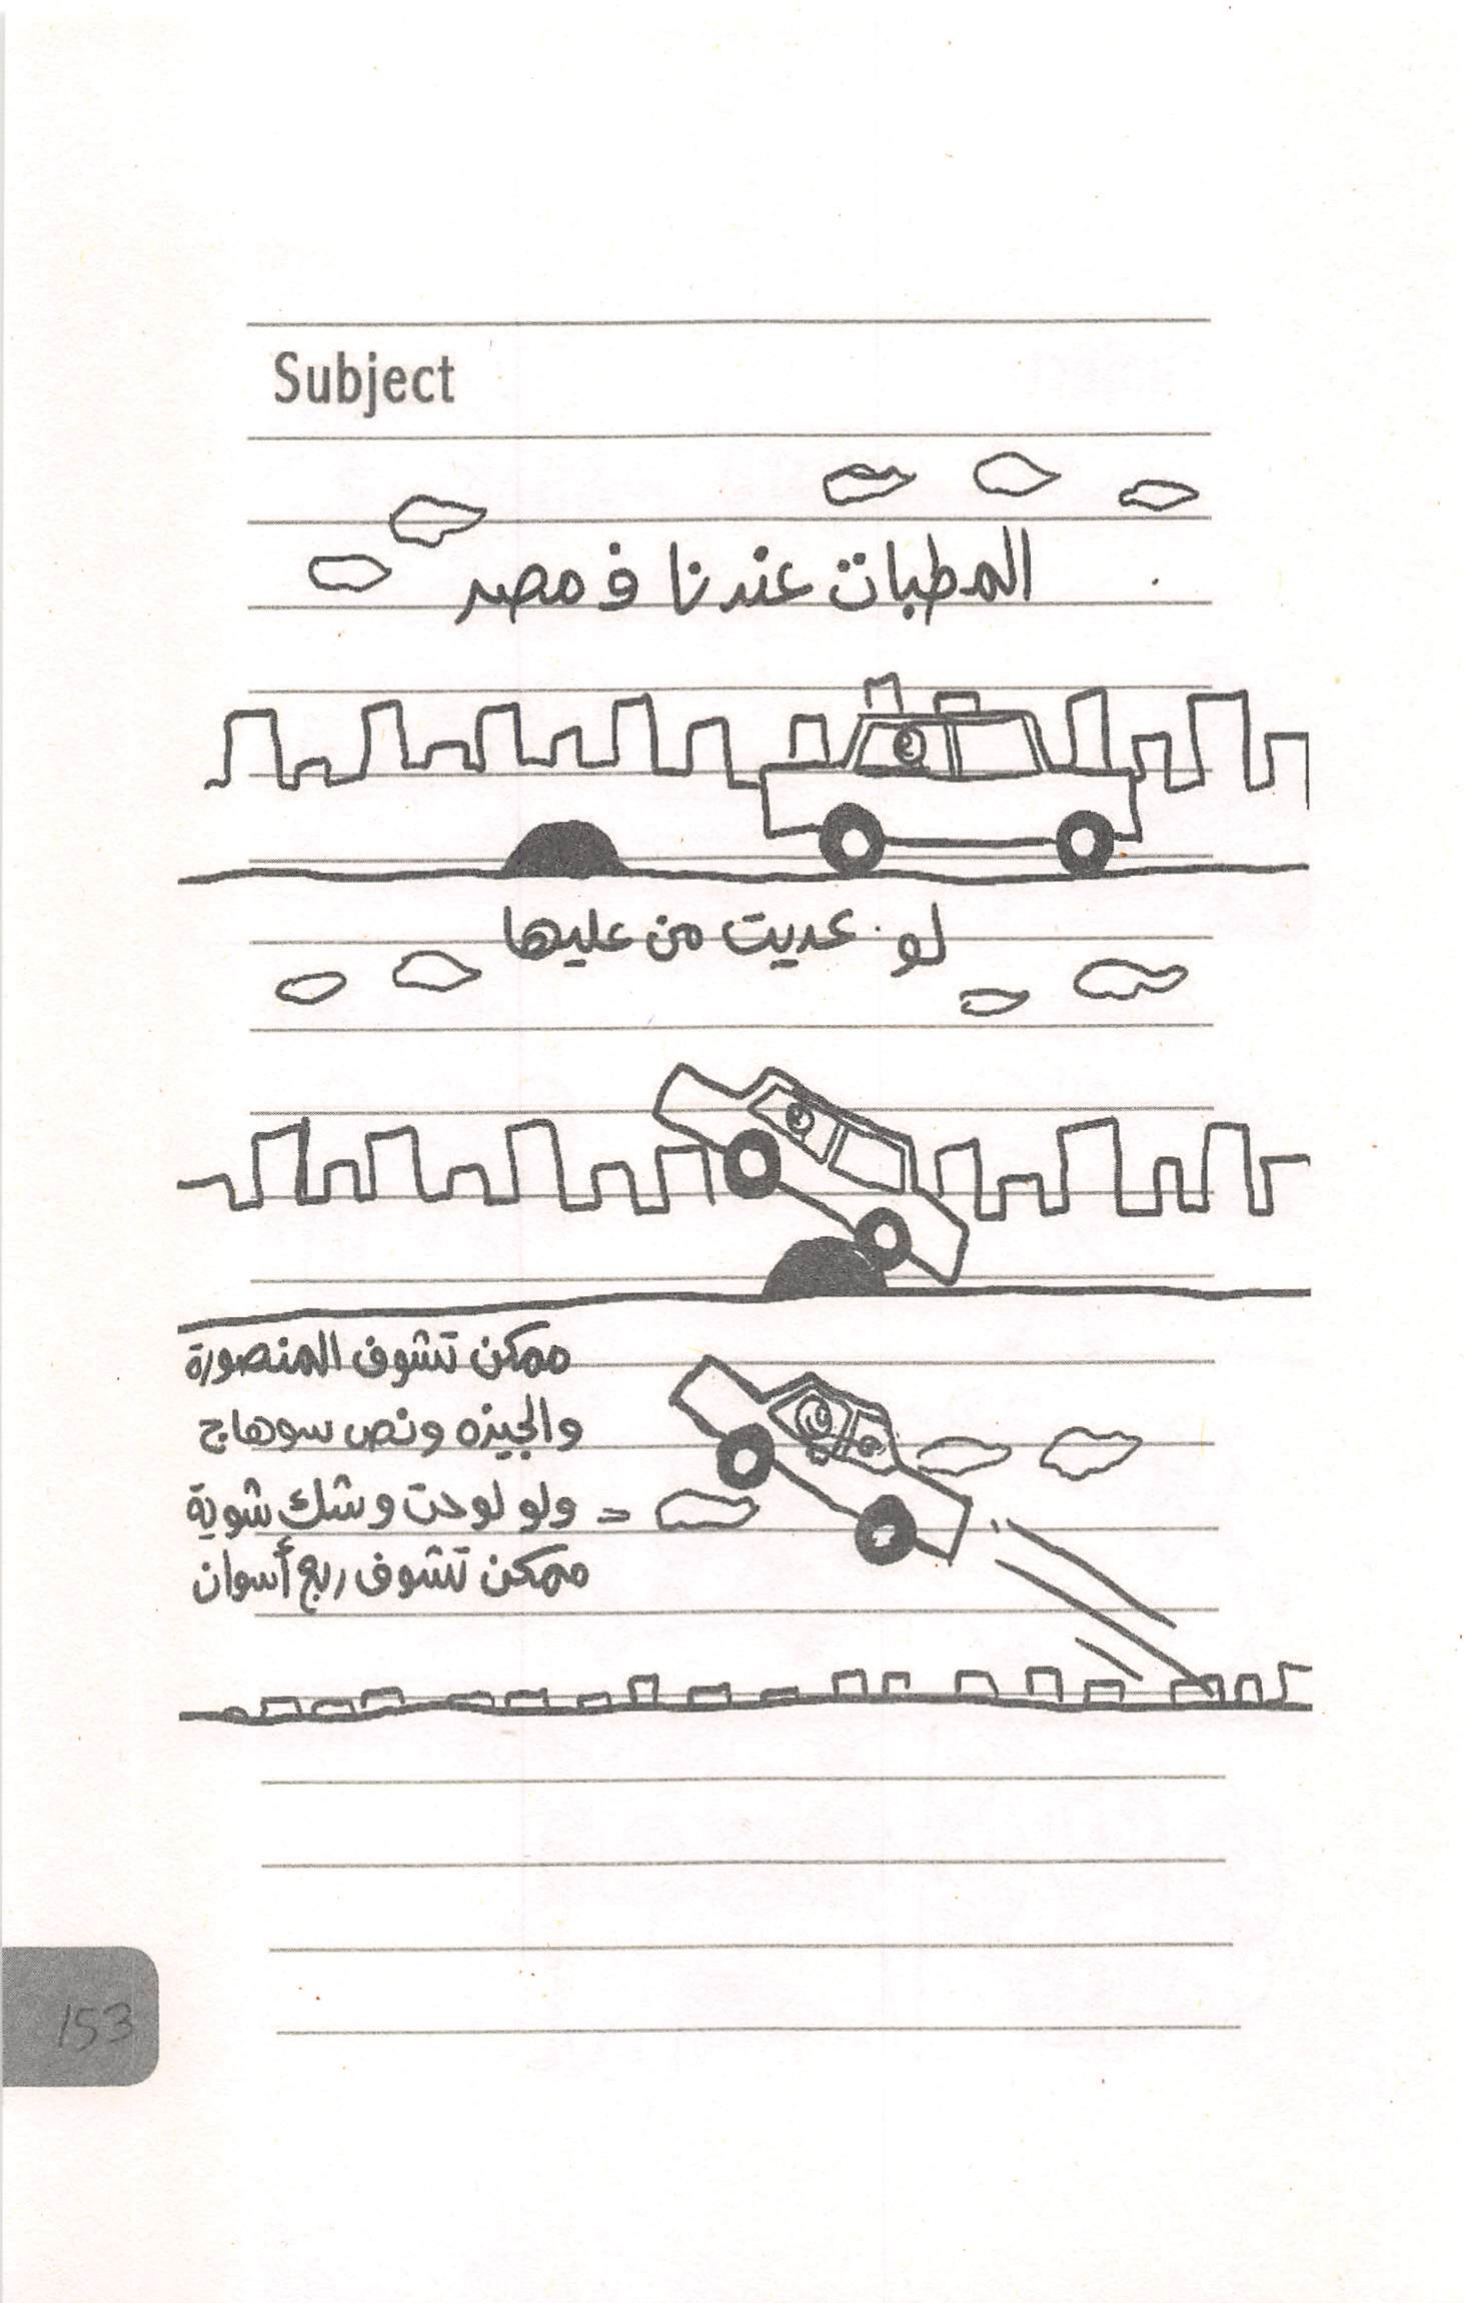 Subject
المطبات عندنا ف مصر
لو عديت من عليها
ممكن تشوف المنصورة
والجيزه ونص سوهاج
ولو لوحت وشك شوية =
ممكن تشوف ربع أسوان
153